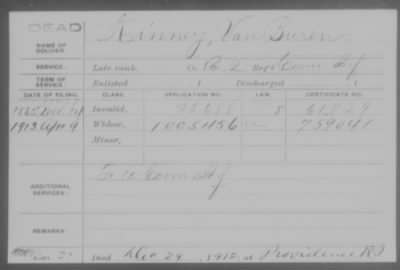 DEAD
NAME OF SOLDIER: Kinney, Van Buren
SERVICE: Late rank, Co. B, 2 Reg't Conn. Inf
TERM OF SERVICE: Enlisted 1 Discharged 1
DATE OF FILING. CLASS. APPLICATION NO. LAW. CERTIFICATE NO.
Invalid, 61,829
1913 Apr 9 Widow, 1005456 759041
Minor,
ADDITIONAL SERVICES: Conn Inf
REMARKS:
Died Dec 29, 1912, at Providence R.I.